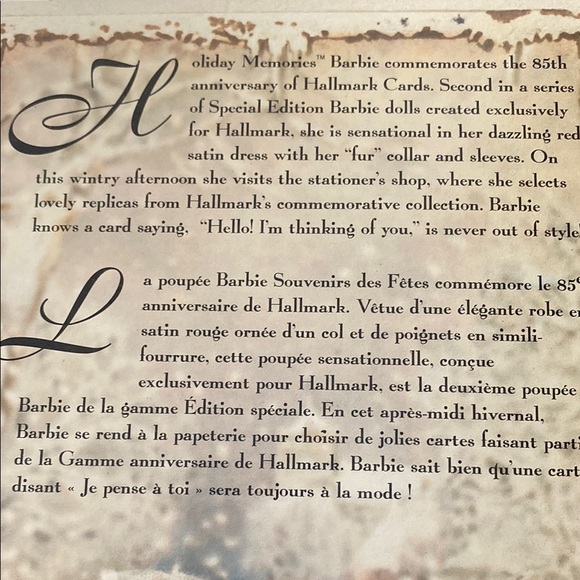 Holiday Memories™ Barbie commemorates the 85th
anniversary of Hallmark Cards. Second in a series
of Special Edition Barbie dolls created exclusively
for Hallmark, she is sensational in her dazzling red
satin dress with her “fur” collar and sleeves. On
this wintry afternoon she visits the stationer’s shop, where she selects
lovely replicas from Hallmark’s commemorative collection. Barbie
knows a card saying, “Hello! I’m thinking of you,” is never out of style!
La poupée Barbie Souvenirs des Fêtes commémore le 85e
anniversaire de Hallmark. Vêtue d’une élégante robe en
satin rouge ornée d’un col et de poignets en simili-
fourrure, cette poupée sensationnelle, conçue
exclusivement pour Hallmark, est la deuxième poupée
Barbie de la gamme Édition spéciale. En cet après-midi hivernal,
Barbie se rend à la papeterie pour choisir de jolies cartes faisant parti
de la Gamme anniversaire de Hallmark. Barbie sait bien qu’une cart
disant « Je pense à toi » sera toujours à la mode !